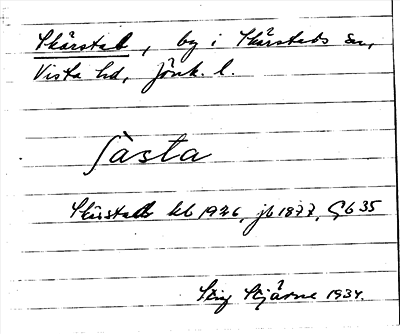 Skärstad, by i Skärstads sn,
Vista hd, Jönk. l.
Sàsta
Skärstads kb 1926, jb 1877, Gb 35
Stig Stjärne 1934.